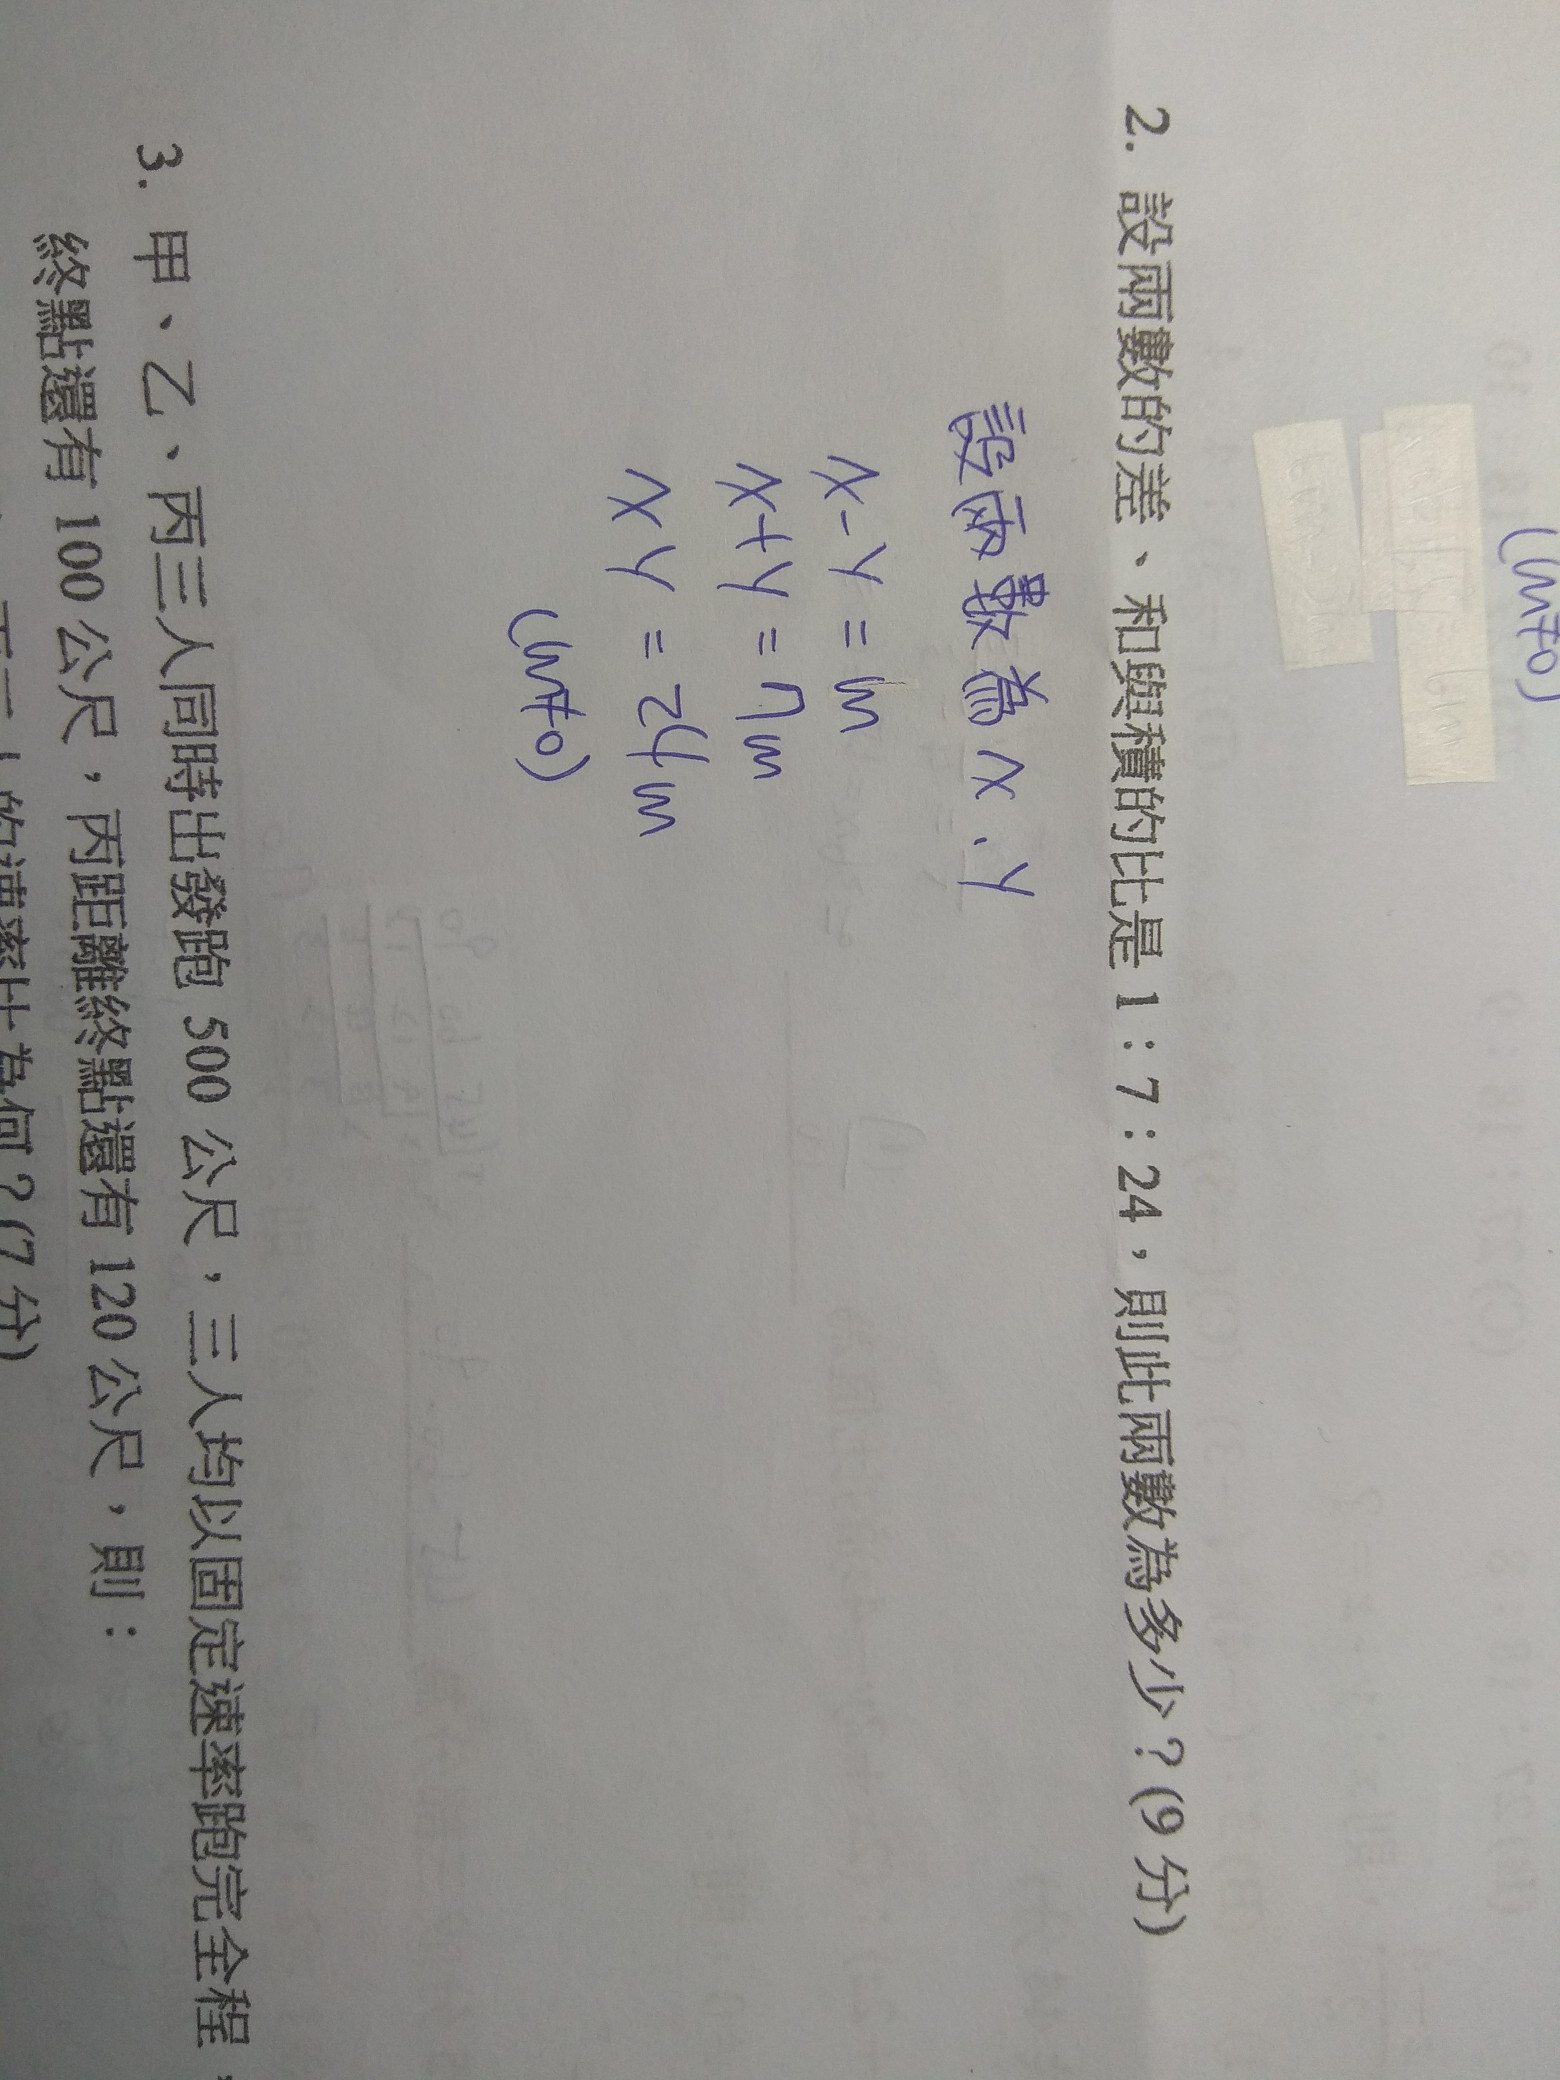 (m≠0)
2. 設兩數的差、和與積的比是 1：7：24，則此兩數為多少？(9 分)
設兩數為 x、y
x-y = m
x+y = 7m
xy = 24m
(m≠0)
3. 甲、乙、丙三人同時出發跑 500 公尺，三人均以固定速率跑完全程，
終點還有 100 公尺，丙距離終點還有 120 公尺，則：
的速率比為何？(7 分)